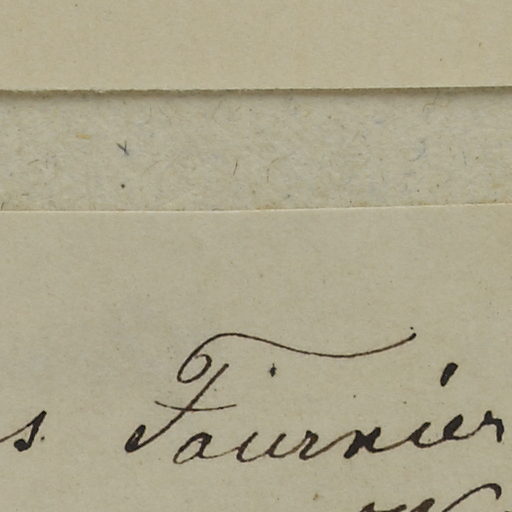 s. Fournier